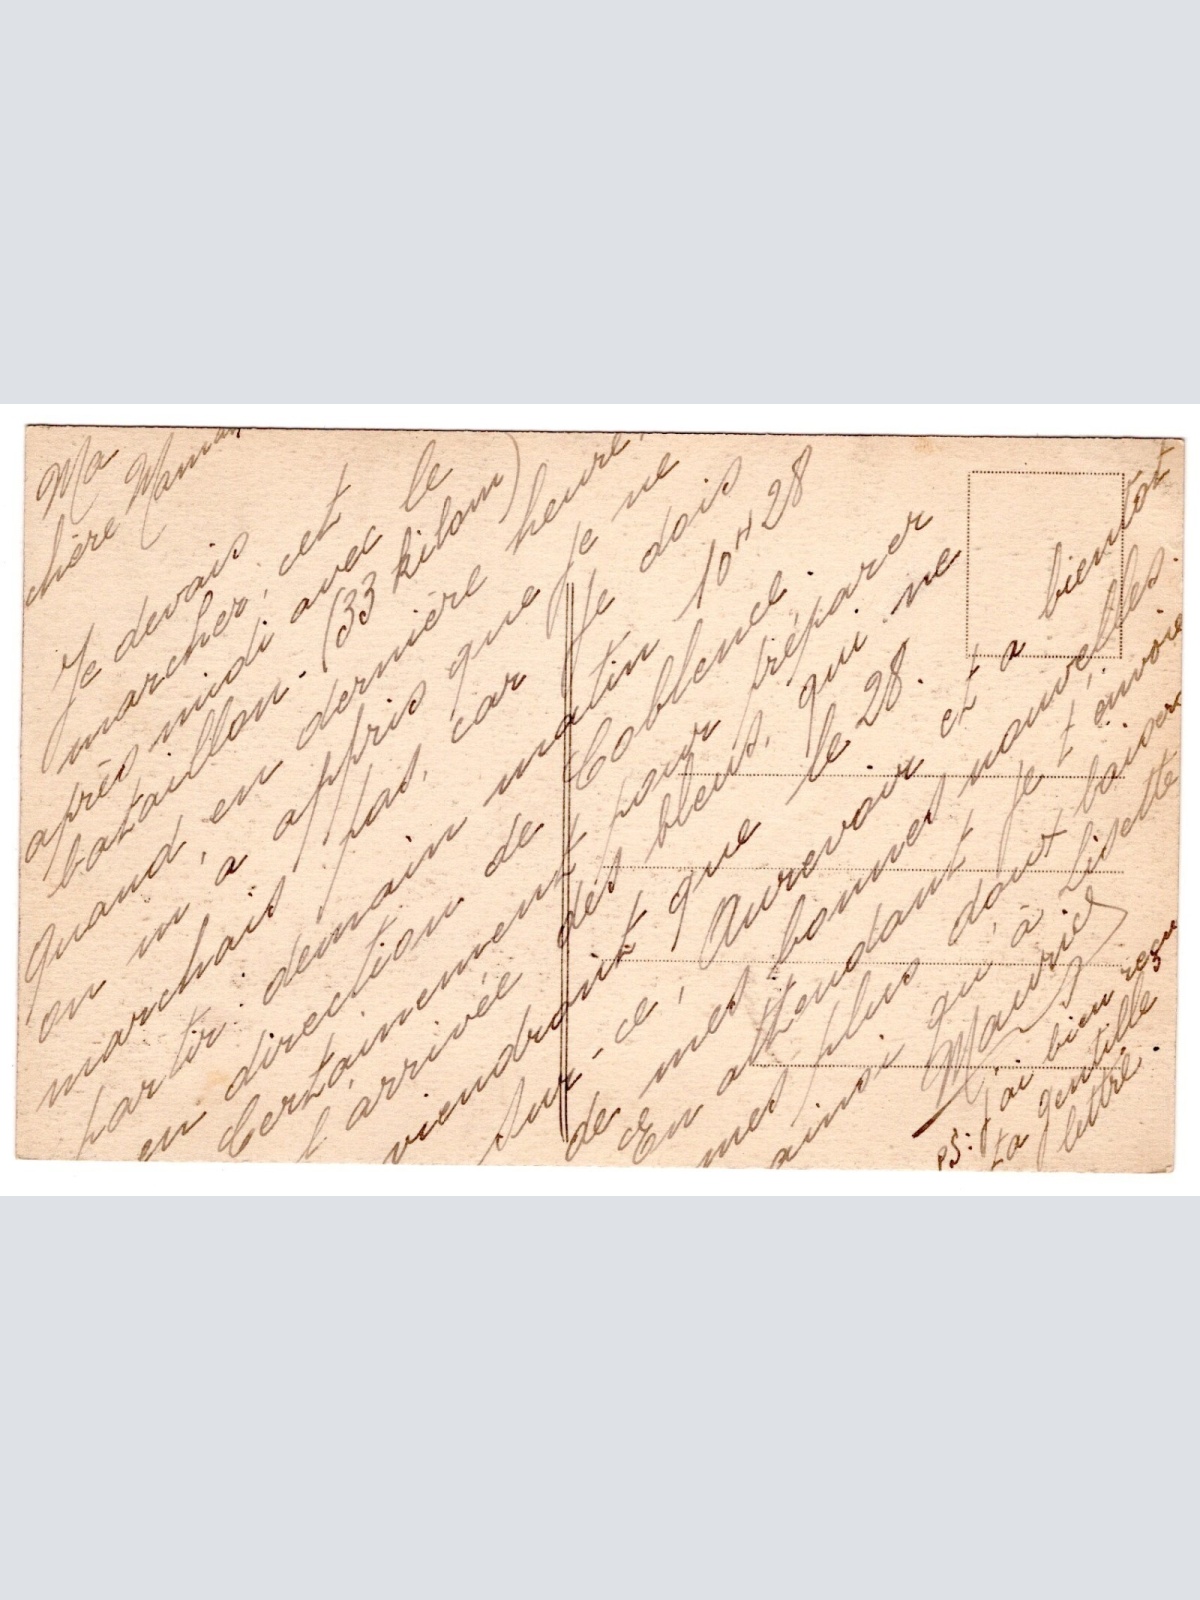 Ma
chère Maman
Je devais
marcher, cet
après midi avec le
bataillon. (33 kilom)
Quand, en dernière heure,
on m'a appris que je ne
marchais pas, car je dois
partir demain matin 10H28
en direction de Coblence.
Certainement pour préparer
l'arrivée des bleus, qui ne
viendront que le 28.
Sur-ce, Aurevoir et a bientôt
de mes bonnes nouvelles.
En attendant je t'envoie
mes plus doux baisers
ainsi qu'à Lisette
Maurice
PS: J'ai bien reçu
ta gentille
lettre.